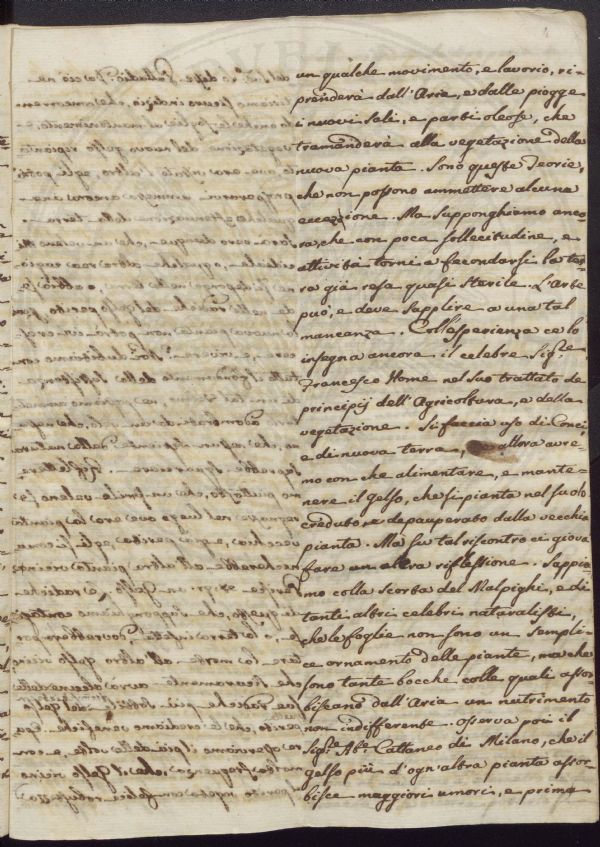 un qualche movimento, e lavorio, ri-
prenderà dall'Aria, e dalle piogge
i nuovi sali, e parti oleose, che
tramanderà alla vegetazione della
nuova pianta. Sono queste Teorie,
che non possono ammettere alcuna
eccezzione. Ma supponghiamo anco-
ra, che con poca sollecitudine, e
attività torni a fecondarsi la ter-
ra già resa quasi sterile. L'Arte
può, e deve supplire a una tal
mancanza. Coll'esperienza ce lo
insegna ancora il celebre Sig.re
Francesco Home nel suo trattato de
principij dell'Agricoltura, e della
vegetazione. Si faccia uso di Conci,
e di nuova terra, allora avre-
mo con che alimentare, e mante-
nere il gelso, che si pianta nel suolo
creduto, e depauperato dalla vecchia
pianta. Ma su tal riscontro ci giova
fare un altra riflessione. Sappia-
mo colla scorta del Malpighi, e di
tanti altri celebri naturalisti,
che le foglie non sono un sempli-
ce ornamento delle piante, ma che
sono tante bocche colle quali assor-
biscano dall'Aria un nutrimento
non indifferente. Osserva poi il
Sig.r Ab.e Cattaneo di Milano, che il
gelso più d'ogn'altra pianta assor-
bisce maggiori umori, e prima